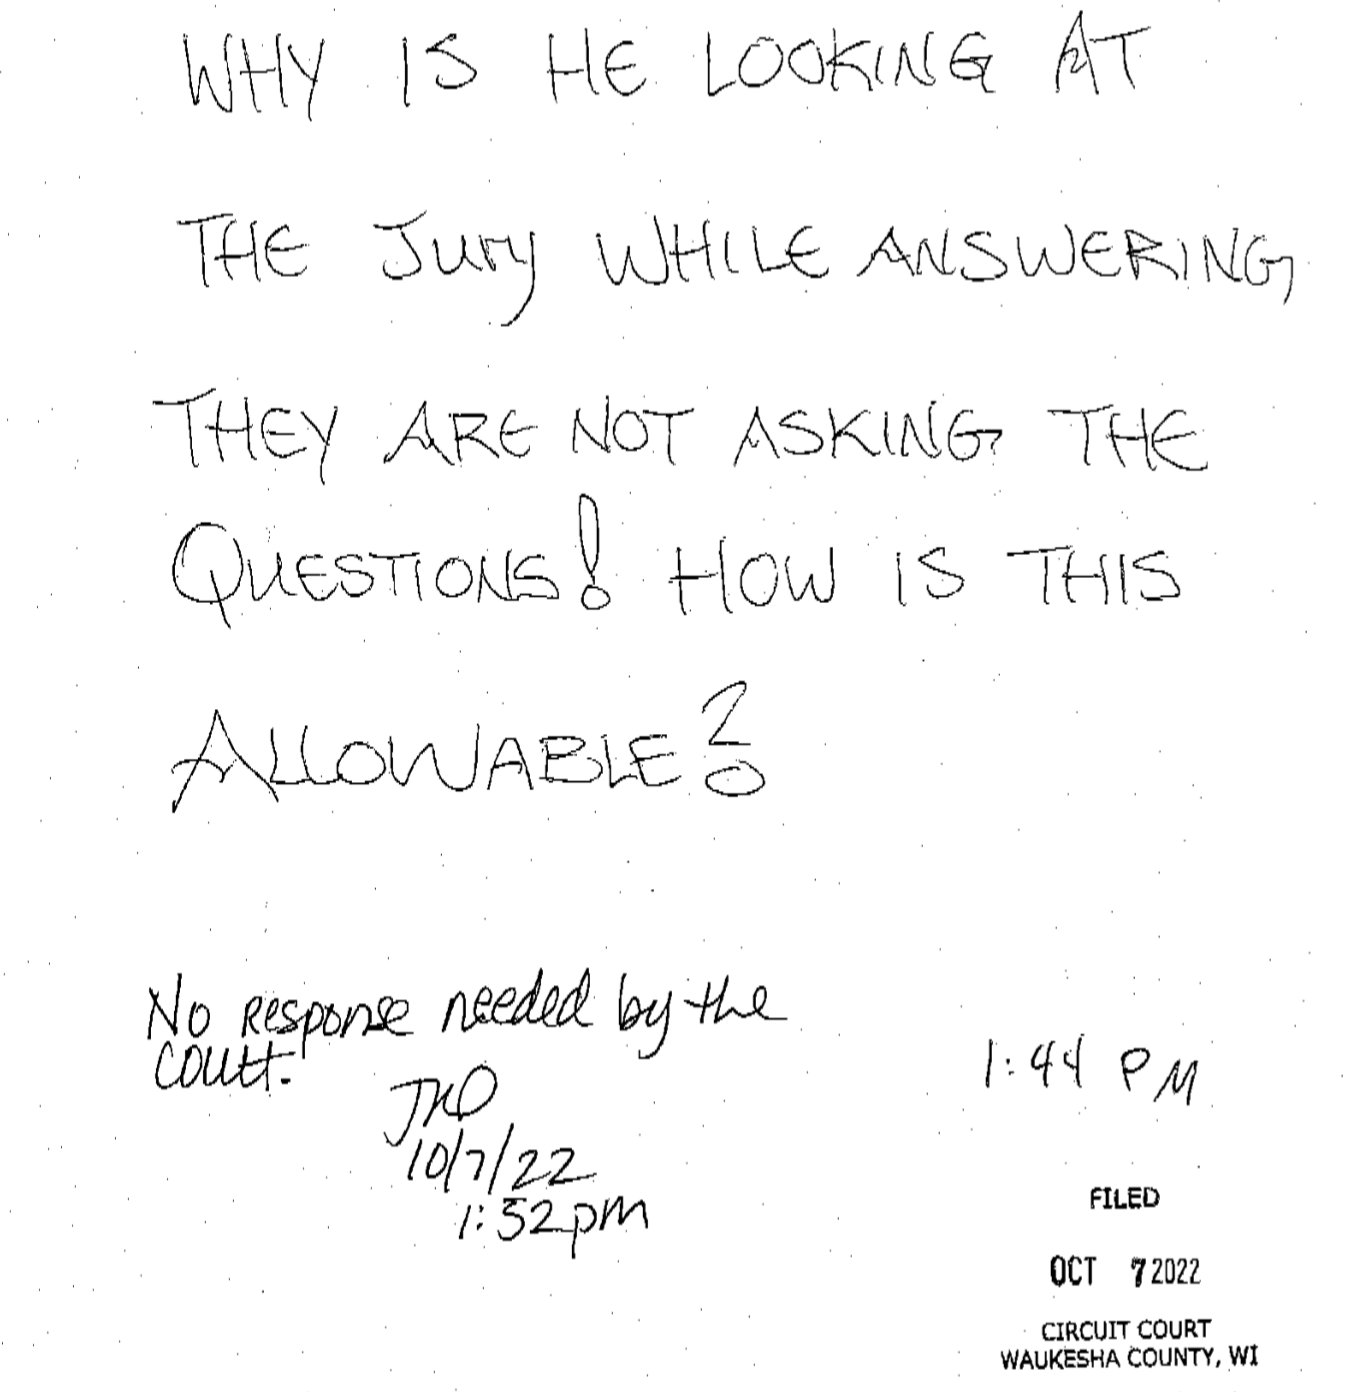 WHY IS HE LOOKING AT
THE JURY WHILE ANSWERING,
THEY ARE NOT ASKING THE
QUESTIONS! HOW IS THIS
ALLOWABLE?
No response needed by the
court.
1:44 PM
JRD
10/7/22
1:52pm
FILED
OCT 7 2022
CIRCUIT COURT
WAUKESHA COUNTY, WI